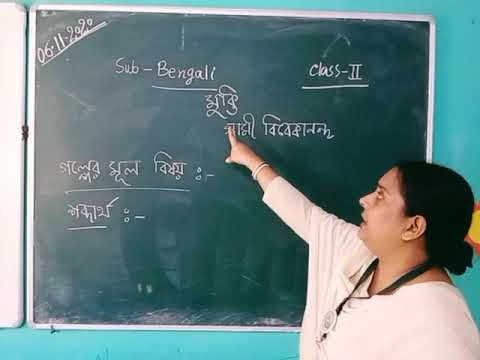 06-11-2020
Sub - Bengali
Class - II
মুক্তি
স্বামী বিবেকানন্দ
গল্পের মূল বিষয় :-
শব্দার্থ :-